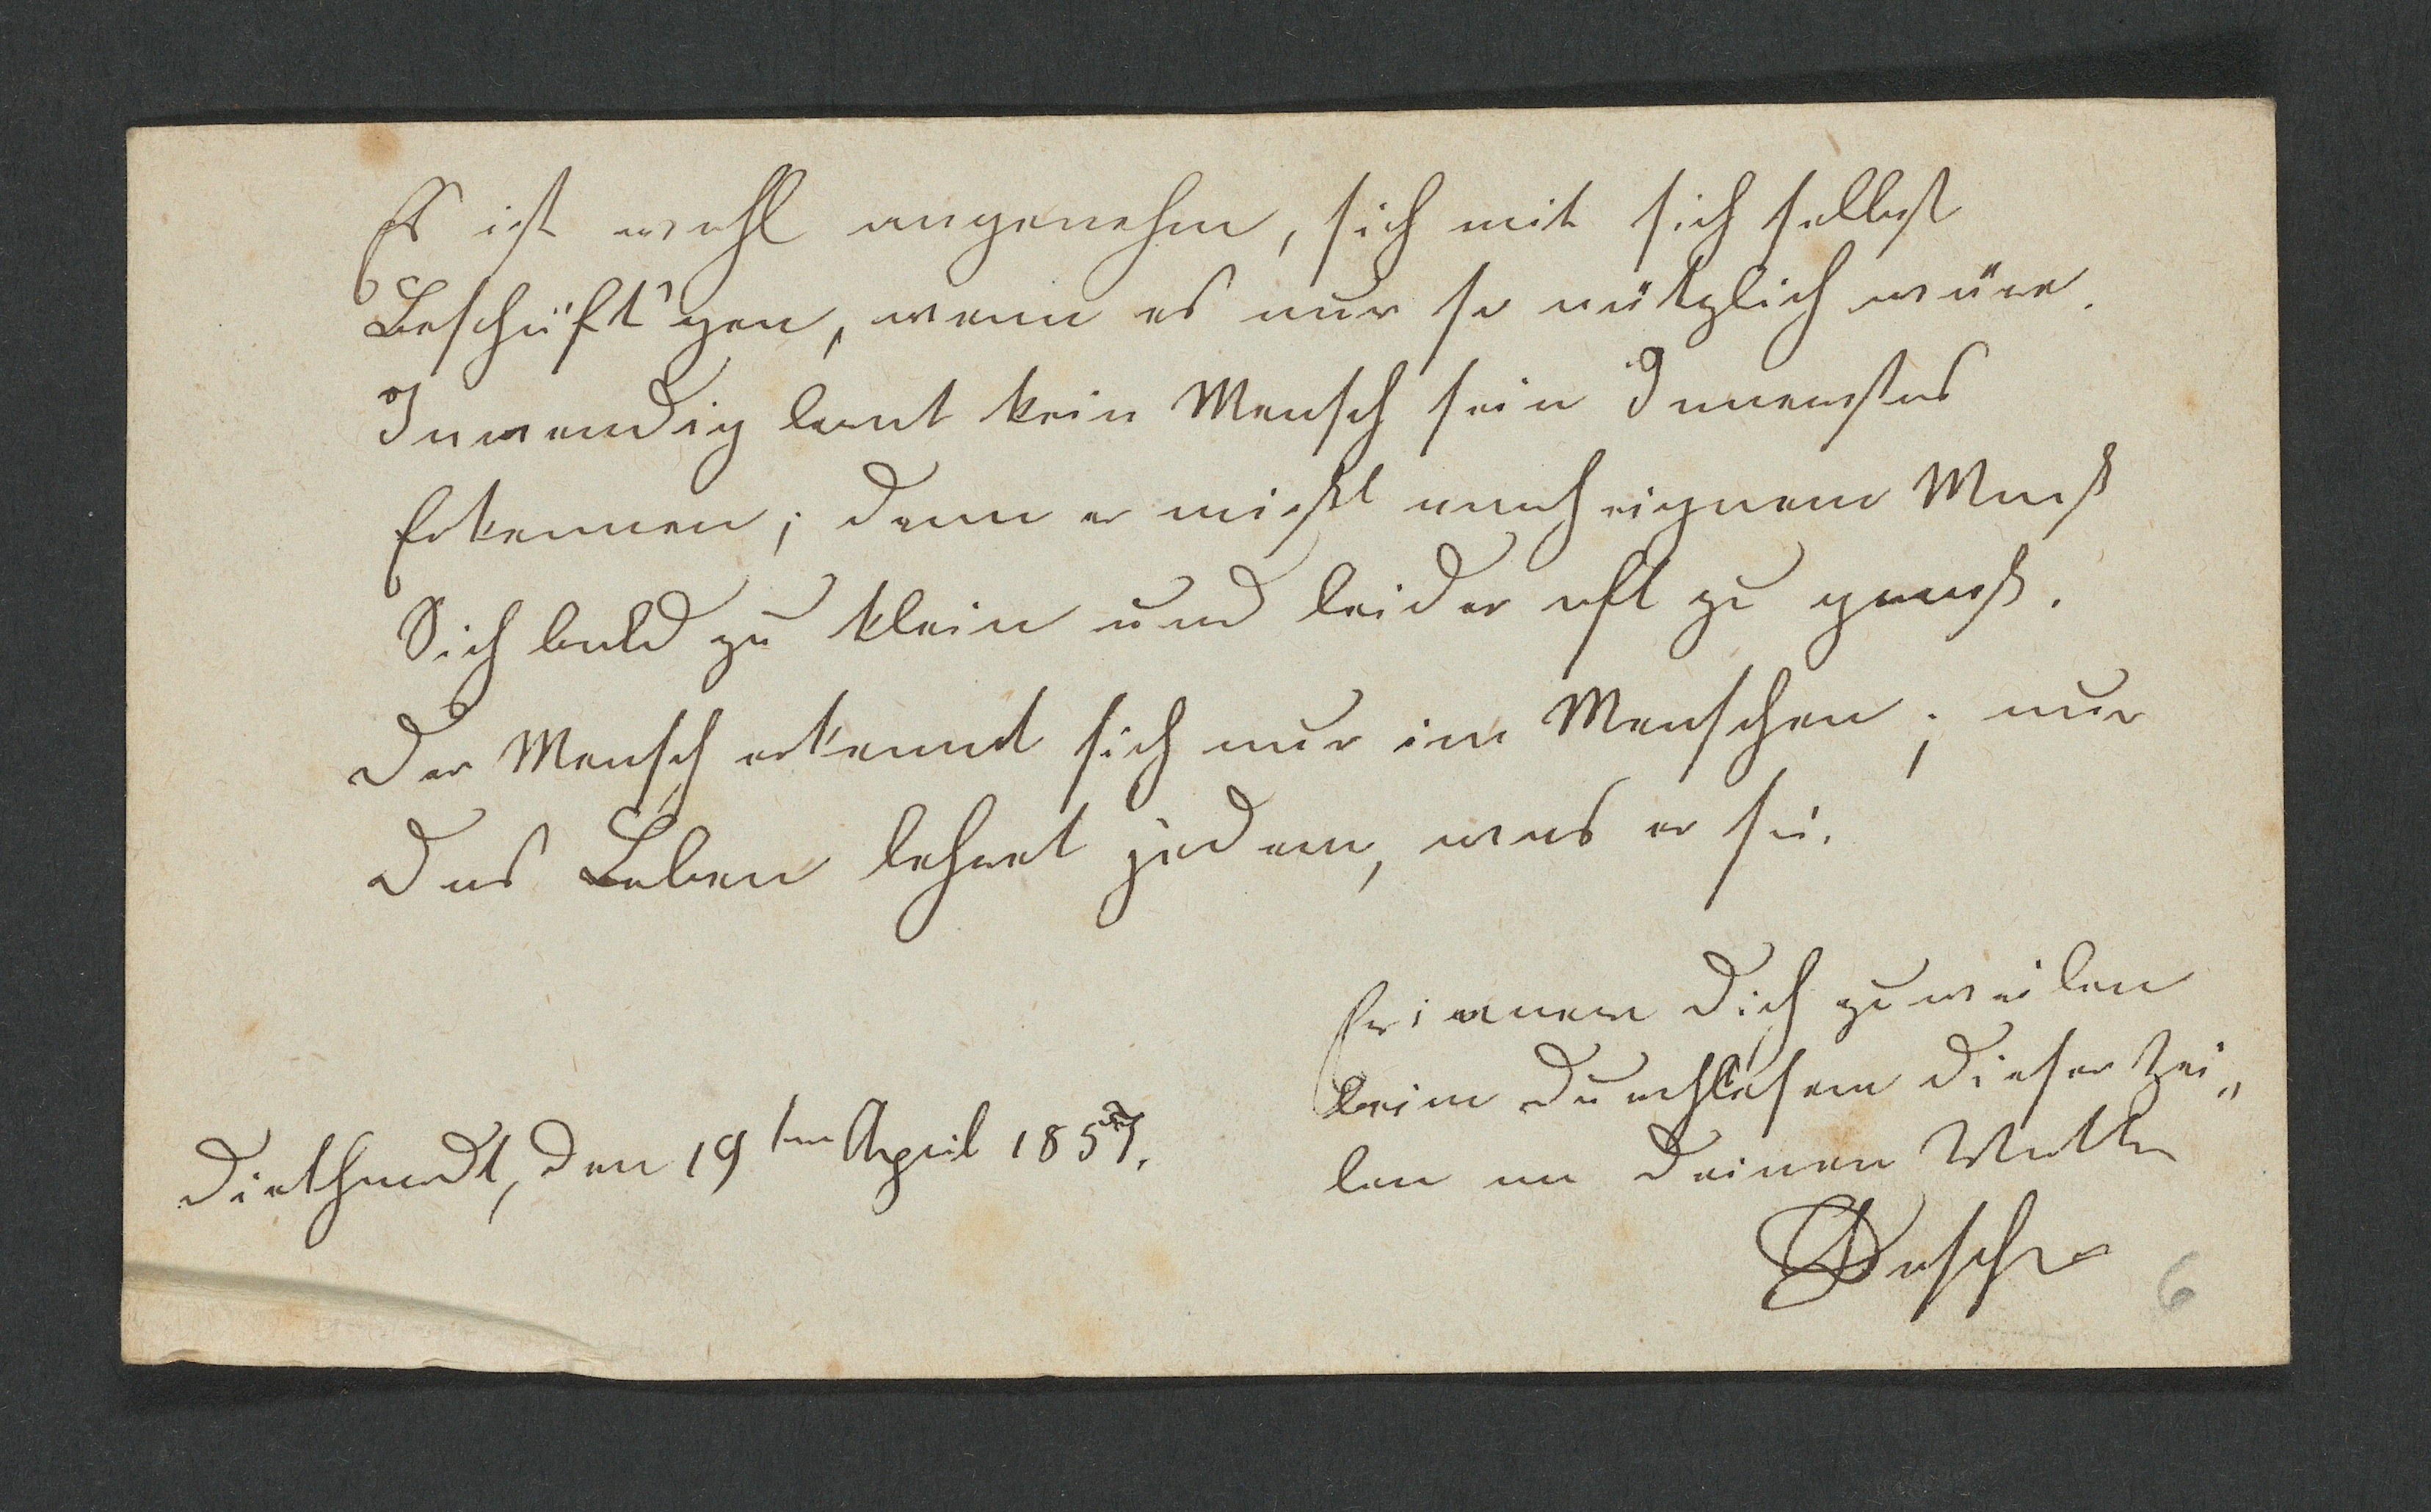 Es ist wohl angenehm, sich mit sich selbst
Beschäft'gen, wenn es nur so nützlich wäre.
Inwendig lernt kein Mensch sein Innerstes
Erkennen; denn er mißt nach eignem Maß
Sich bald zu klein und leider oft zu groß.
Der Mensch erkennt sich nur im Menschen; nur
Das Leben lehret jedem, was er sei.
Erinnere Dich zuweilen
beim Durchlesen dieser Zei„
len an Deinen
den 19ten April 1857.
6